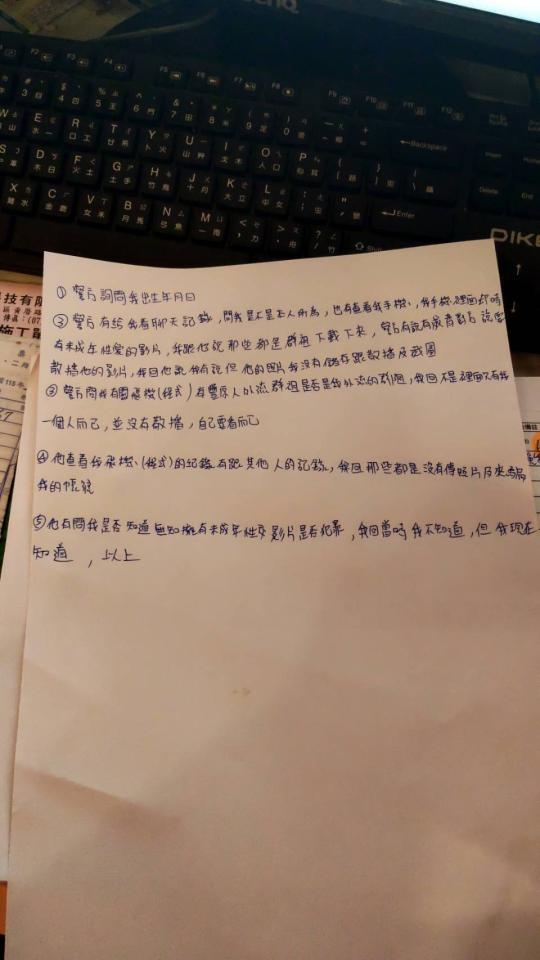 ① 警方詢問我出生年月日
② 警方有給我看聊天記錄，問我是不是本人所為，也有查看我手機，我手機裡面
有未成年性愛的影片，我跟他說那些都是群組下載下來，警方有說有錄音
散播他的影片，我回他說我有說但他的照片我沒有儲存跟散播及截圖
③ 警方問我有關飛機(程式)有豐原人外流群組是否是我外流的群組，我回不是裡面只有我
一個人而已，並沒有散播，自己要看而已
④ 他查看我飛機(程式)的紀錄有跟其他人的記錄，我回那些都是沒有傳照片
我的帳號
⑤他有問我是否知道 擁有未成年性交影片是否犯罪，我回當時我不知道，但我現在
知道，以上